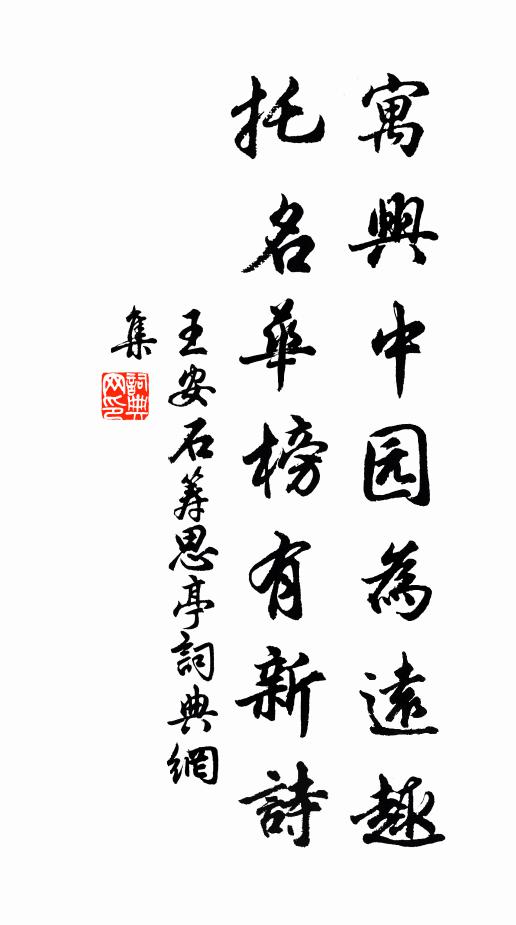 寓興中园為遠趣
托名華榜有新詩
王安石筹思亭詞典網
集
詞典
网印